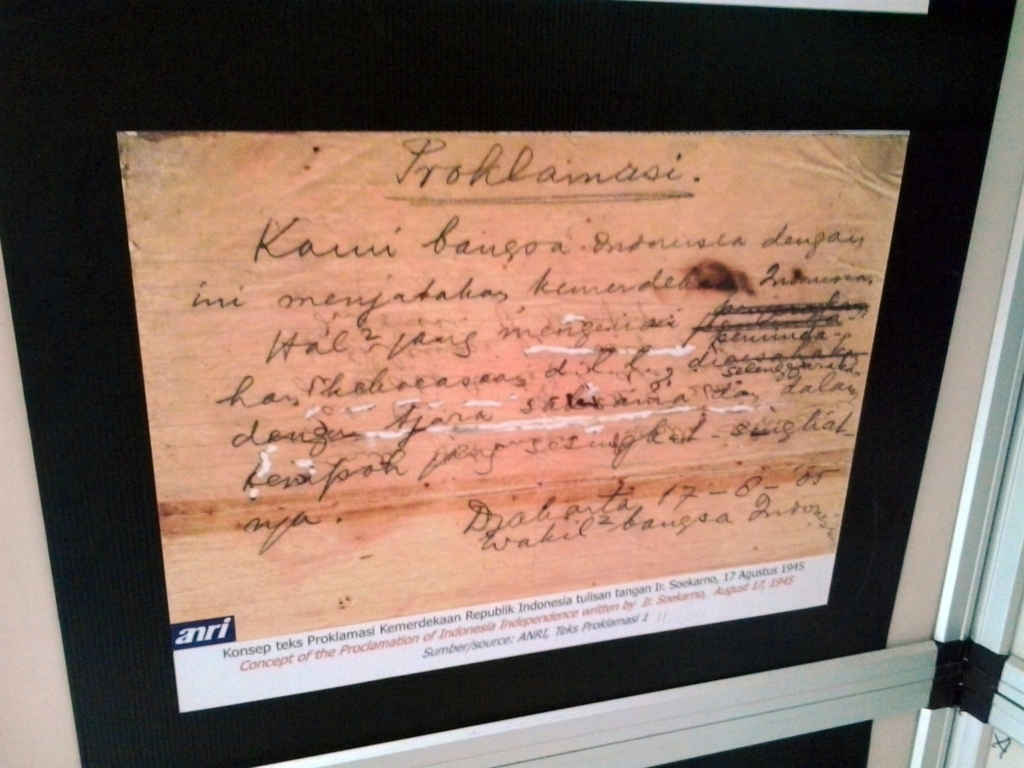 Proklamasi.
Kami bangsa Indonesia dengan
ini menjatakan kemerdekaan Indonesia.
Hal² jang mengenai
peminda-
han kekoeasaan d.l.l., dioesahakan
selenggarakan
dengan tjara saksama dan dalam
tempoh jang sesingkat-singkat-
nja.
Djakarta 17 - 8 - '05
Wakil² bangsa Indonesia
anri
Konsep teks Proklamasi Kemerdekaan Republik Indonesia tulisan tangan Ir. Soekarno, 17 Agustus 1945
Concept of the Proclamation of Indonesia Independence written by Ir. Soekarno, August 17, 1945
Sumber/source: ANRI, Teks Proklamasi 1